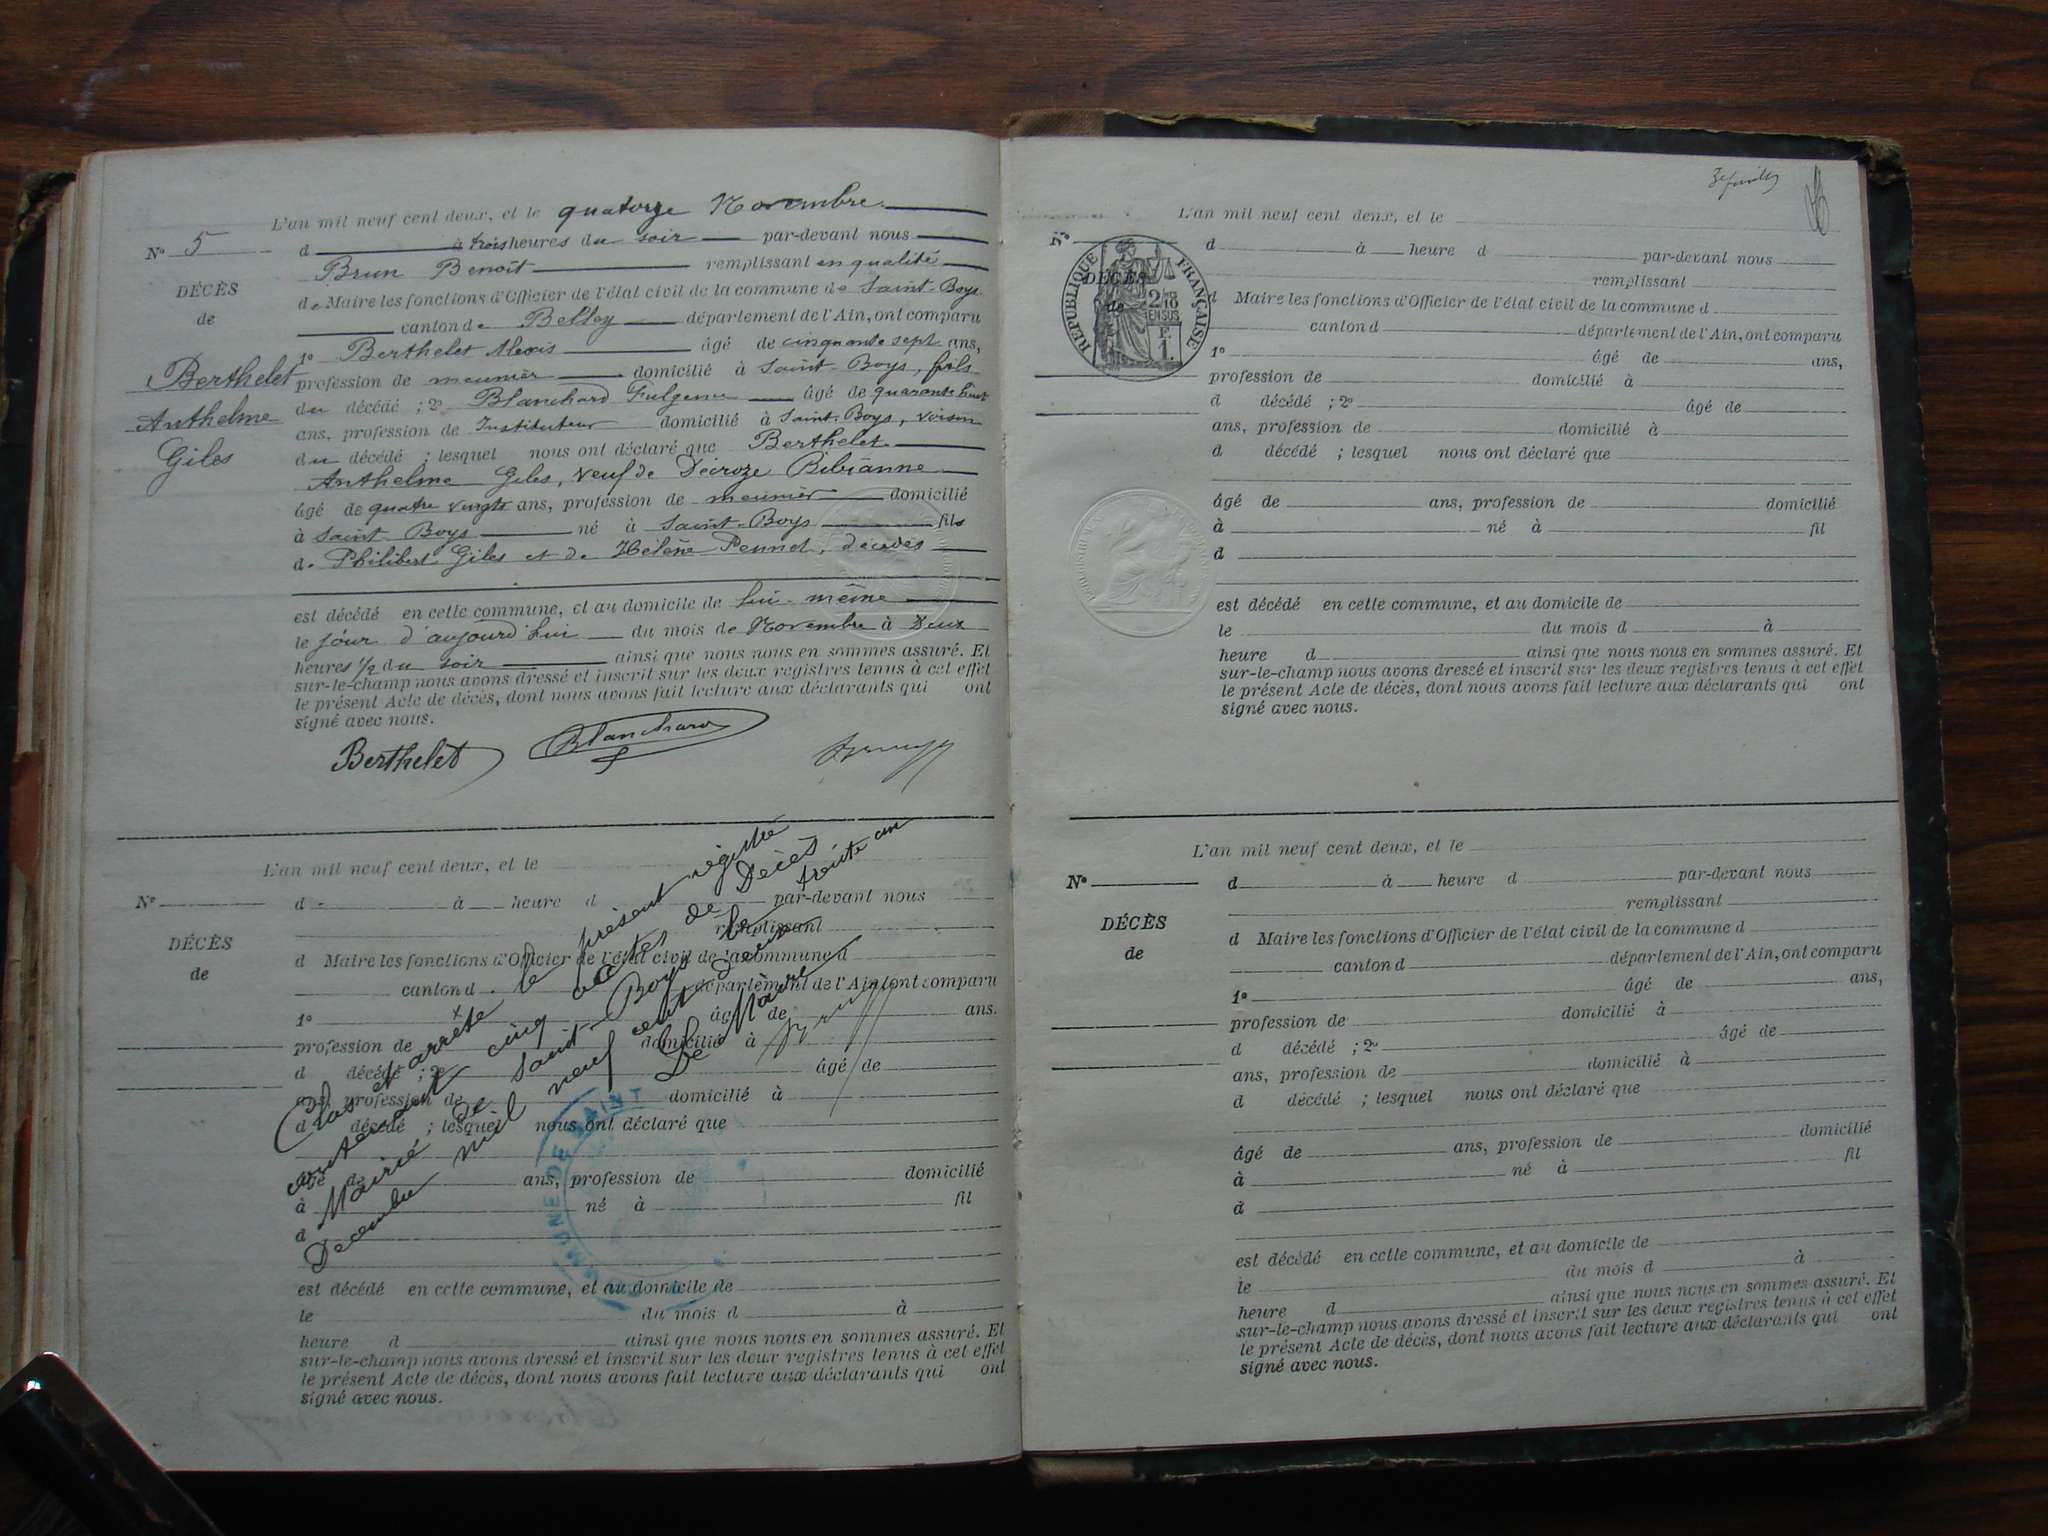 L'an mil neuf cent deux, et le quatorze Novembre
N° 5
d à trois heures du soir par-devant nous
Brun Benoît remplissant en qualité
DÉCÈS
de Maire les fonctions d'Officier de l'état civil de la commune de Saint-Boys
de
canton de Belley département de l'Ain, ont comparu
1° Berthelet Alexis âgé de cinquante sept ans,
Berthelet
profession de meunier domicilié à Saint-Boys, fils
du décédé ; 2° Blanchard Fulgence âgé de quarante huit
Anthelme
ans, profession de Instituteur domicilié à Saint-Boys, voisin
Giles
du décédé ; lesquel nous ont déclaré que Berthelet
Anthelme Giles, veuf de Décroze Bibianne
âgé de quatre vingts ans, profession de meunier domicilié
à Saint-Boys né à Saint-Boys fils
de Philibert Giles et de Hélène Pennet, décédés
est décédé en cette commune, et au domicile de lui-même
le jour d'aujourd'hui du mois de Novembre à Deux
heures 1/2 du soir ainsi que nous nous en sommes assuré. Et
sur-le-champ nous avons dressé et inscrit sur les deux registres tenus à cet effet
le présent Acte de décès, dont nous avons fait lecture aux déclarants qui ont
signé avec nous.
Berthelet Blanchard
L'an mil neuf cent deux, et le
N° d à heure d par-devant nous
remplissant
DÉCÈS
d Maire les fonctions d'Officier de l'état civil de la commune d
de
canton d département de l'Ain, ont comparu
1° âgé de ans.
profession de domicilié à
d décédé ; 2° âgé de
ans, profession de domicilié à
d décédé ; lesquel nous ont déclaré que
âgé de ans, profession de domicilié
à né à fil
d
est décédé en cette commune, et au domicile de
le du mois d à
heure d ainsi que nous nous en sommes assuré. Et
sur-le-champ nous avons dressé et inscrit sur les deux registres tenus à cet effet
le présent Acte de décès, dont nous avons fait lecture aux déclarants qui ont
signé avec nous.
Clos et arrêté le présent registre
contenant cinq actes de Décès
Mairie de Saint-Boys le trente un
Décembre mil neuf cent deux
Le Maire
MUNE DE SAINT
L'an mil neuf cent deux, et le
N°
d à heure d par-devant nous
remplissant
DÉCÈS
de
RÉPUBLIQUE FRANÇAISE
2/10 EN SUS
F. 1.
d Maire les fonctions d'Officier de l'état civil de la commune d
canton d département de l'Ain, ont comparu
1° âgé de ans,
profession de domicilié à
d décédé ; 2° âgé de
ans, profession de domicilié à
d décédé ; lesquel nous ont déclaré que
âgé de ans, profession de domicilié
à né à fil
d
est décédé en cette commune, et au domicile de
le du mois d à
heure d ainsi que nous nous en sommes assuré. Et
sur-le-champ nous avons dressé et inscrit sur les deux registres tenus à cet effet
le présent Acte de décès, dont nous avons fait lecture aux déclarants qui ont
signé avec nous.
L'an mil neuf cent deux, et le
N° d à heure d par-devant nous
remplissant
DÉCÈS
d Maire les fonctions d'Officier de l'état civil de la commune d
de
canton d département de l'Ain, ont comparu
1° âgé de ans,
profession de domicilié à
d décédé ; 2° âgé de
ans, profession de domicilié à
d décédé ; lesquel nous ont déclaré que
âgé de ans, profession de domicilié
à né à fil
d
est décédé en cette commune, et au domicile de
le du mois d à
heure d ainsi que nous nous en sommes assuré. Et
sur-le-champ nous avons dressé et inscrit sur les deux registres tenus à cet effet
le présent Acte de décès, dont nous avons fait lecture aux déclarants qui ont
signé avec nous.